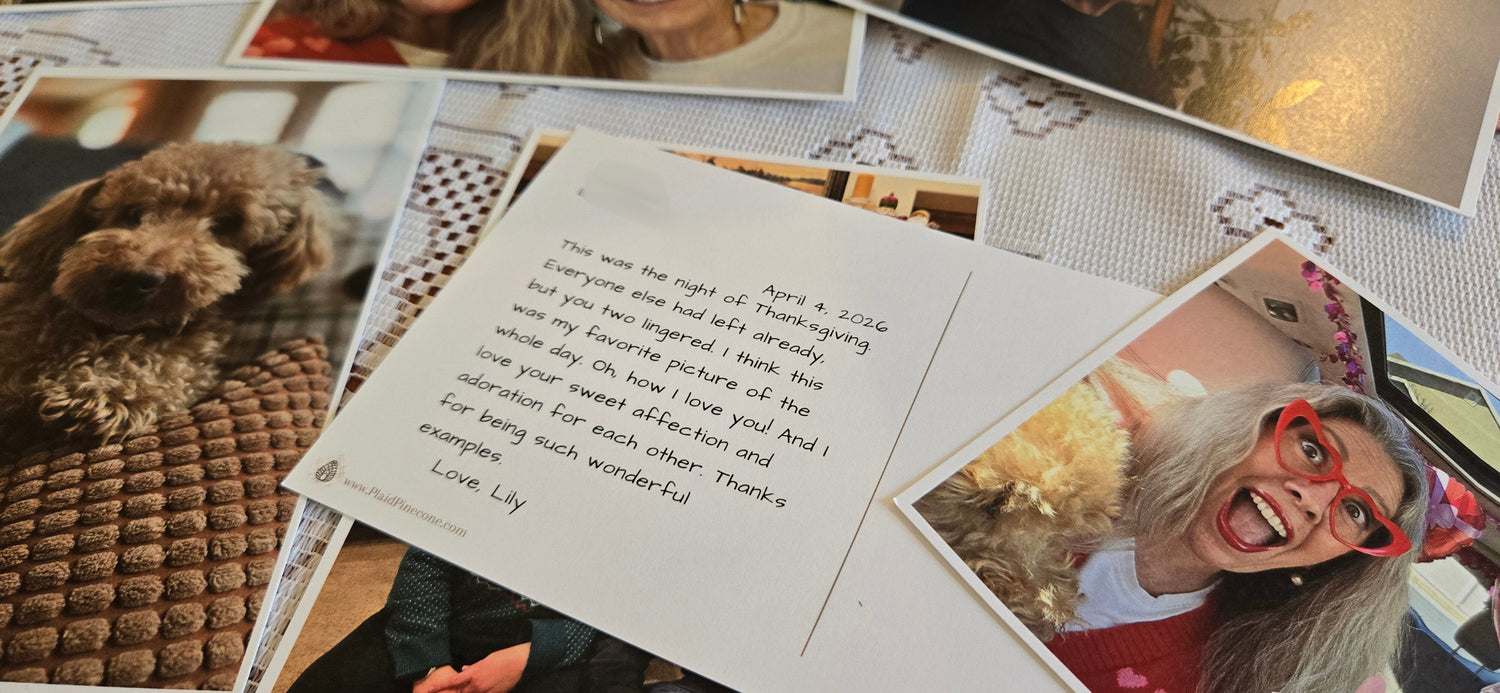 April 4, 2026
This was the night of Thanksgiving.
Everyone else had left already,
but you two lingered. I think this
was my favorite picture of the
whole day. Oh, how I love you! And I
love your sweet affection and
adoration for each other. Thanks
for being such wonderful
examples.
Love, Lily
www.PlaidPinecone.com